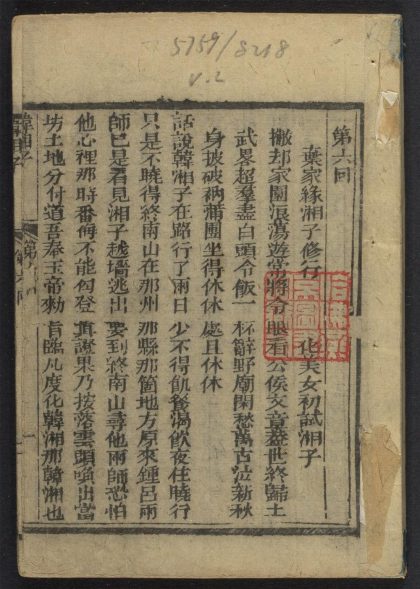 5759/8218
v.2
第六回
棄家緣湘子修行　化美女初試湘子
撇却家園浪蕩遊常將冷眼看公侯文章蓋世終歸土
武畧超羣盡白頭令飯一杯辭野廟閑愁萬古泣新秋
身披破衲蒲團坐得休休處且休休
話說韓湘子在路行了兩日少不得飢餐渴飲夜住曉行
只是不曉得終南山在那州那縣那箇地方原來鍾呂兩
師已是看見湘子越墻逃出要到終南山尋他兩師恐怕
他心裡那時番悔不能勾登眞證果乃按落雲頭喚出當
坊土地分付道吾奉玉帝勅旨臨凡度化韓湘那韓湘也
韓湘子
第六回